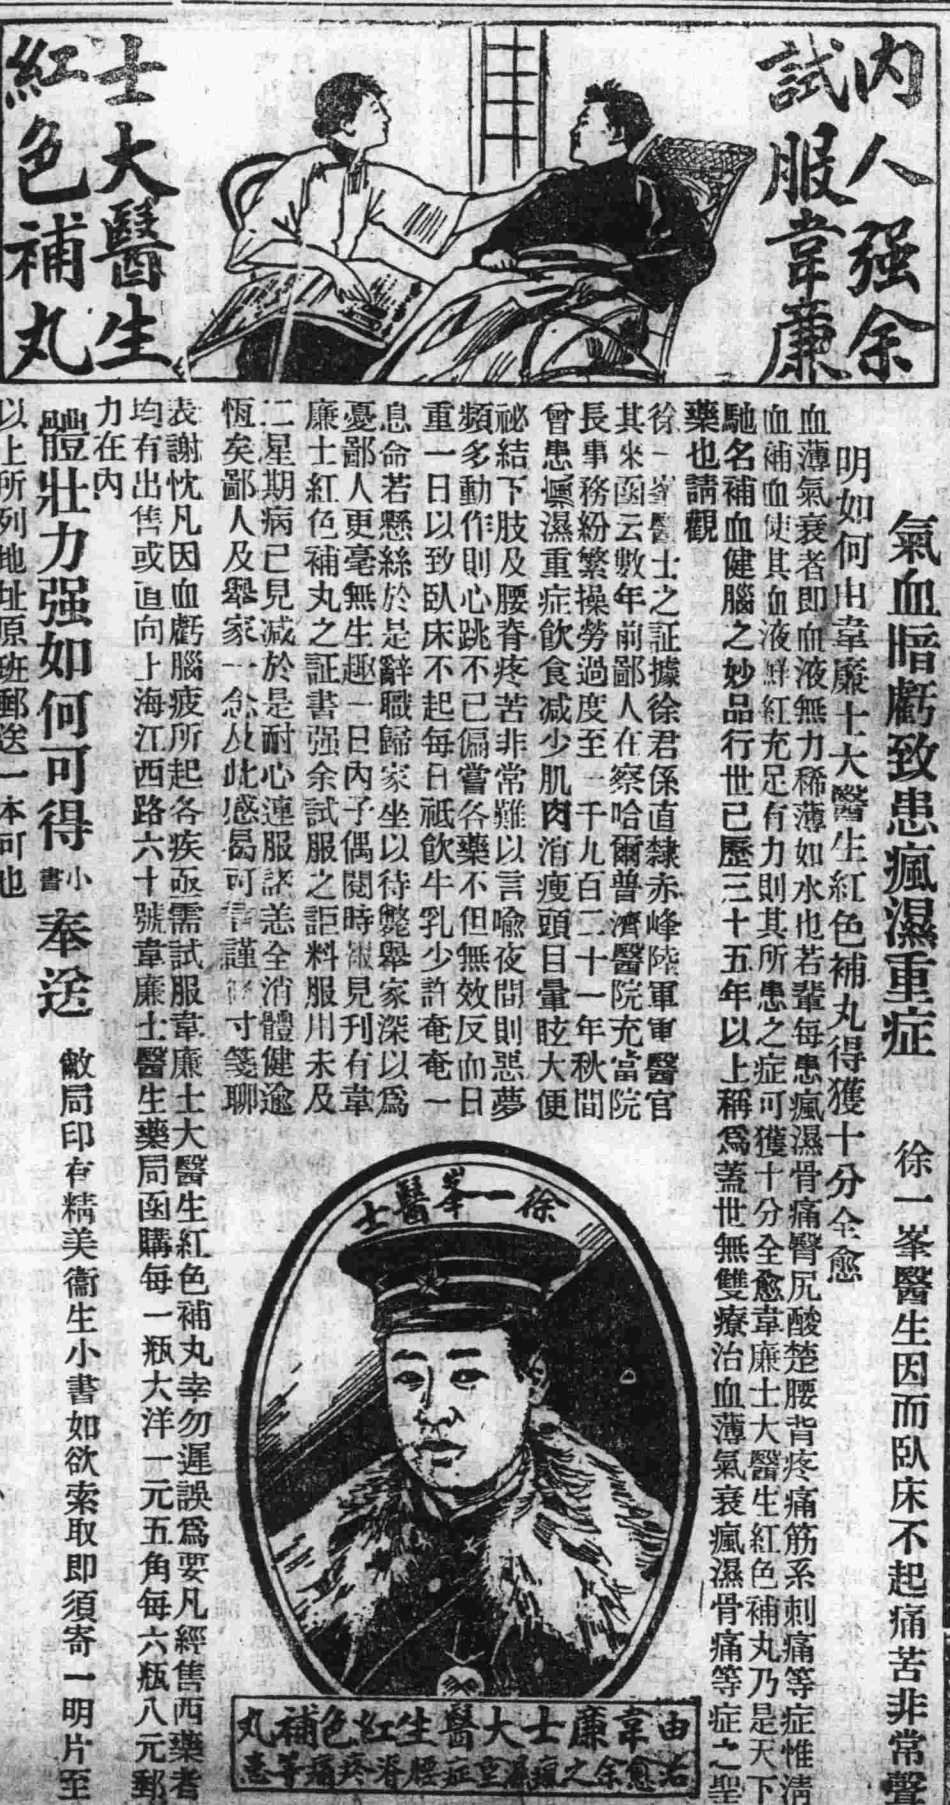 内人强余
試服韋廉
士大醫生
紅色補丸
氣血暗虧致患瘋濕重症
徐一峯醫生因而臥床不起痛苦非常聲
明如何由韋廉士大醫生紅色補丸得獲十分全愈
血薄氣衰者即血液無力稀薄如水也若輩每患瘋濕骨痛臀尻酸楚腰背疼痛筋系刺痛等症惟清
血補血使其血液鮮紅充足有力則其所患之症可獲十分全愈韋廉士大醫生紅色補丸乃是天下
馳名補血健腦之妙品行世已歷三十五年以上稱為蓋世無雙療治血薄氣衰瘋濕骨痛等症之聖
藥也請觀
徐一峯醫士之証據徐君係直隸赤峰陸軍軍醫官
其來函云數年前鄙人在察哈爾普濟醫院充當院
長事務紛繁操勞過度至一千九百二十一年秋間
曾患瘋濕重症飲食减少肌肉消瘦頭目暈眩大便
祕結下肢及腰脊疼苦非常難以言喻夜間則惡夢
頻多動作則心跳不已偏嘗各藥不但無效反而日
重一日以致臥床不起每日祗飲牛乳少許奄奄一
息命若懸絲於是辭職歸家坐以待斃舉家深以為
憂鄙人更毫無生趣一日內子偶閱時報見刊有韋
廉士紅色補丸之証書强余試服之詎料服用未及
二星期病已見减於是耐心連服諸恙全消體健逾
恆矣鄙人及舉家一念及此感曷可言謹修寸箋聊
表謝忱凡因血虧腦疲所起各疾亟需試服韋廉士大醫生紅色補丸幸勿遲誤為要凡經售西藥者
均有出售或直向上海江西路六十號韋廉士醫生藥局函購每一瓶大洋一元五角每六瓶八元郵
力在內
體壯力强如何可得小書奉送
敝局印有精美衞生小書如欲索取即須寄一明片至
以上所列地址原班郵送一本可也
徐一峯醫士
由韋廉士大醫生紅色補丸
治愈余之瘋濕重症腰脊疼痛等恙